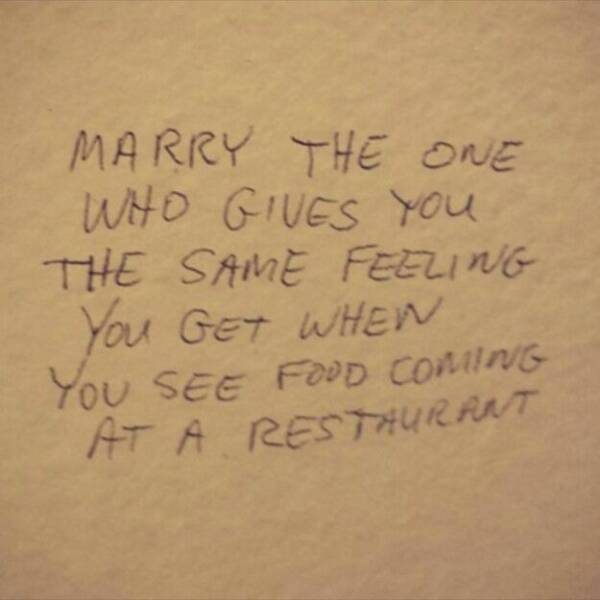 MARRY THE ONE
WHO GIVES YOU
THE SAME FEELING
YOU GET WHEN
YOU SEE FOOD COMING
AT A RESTAURANT